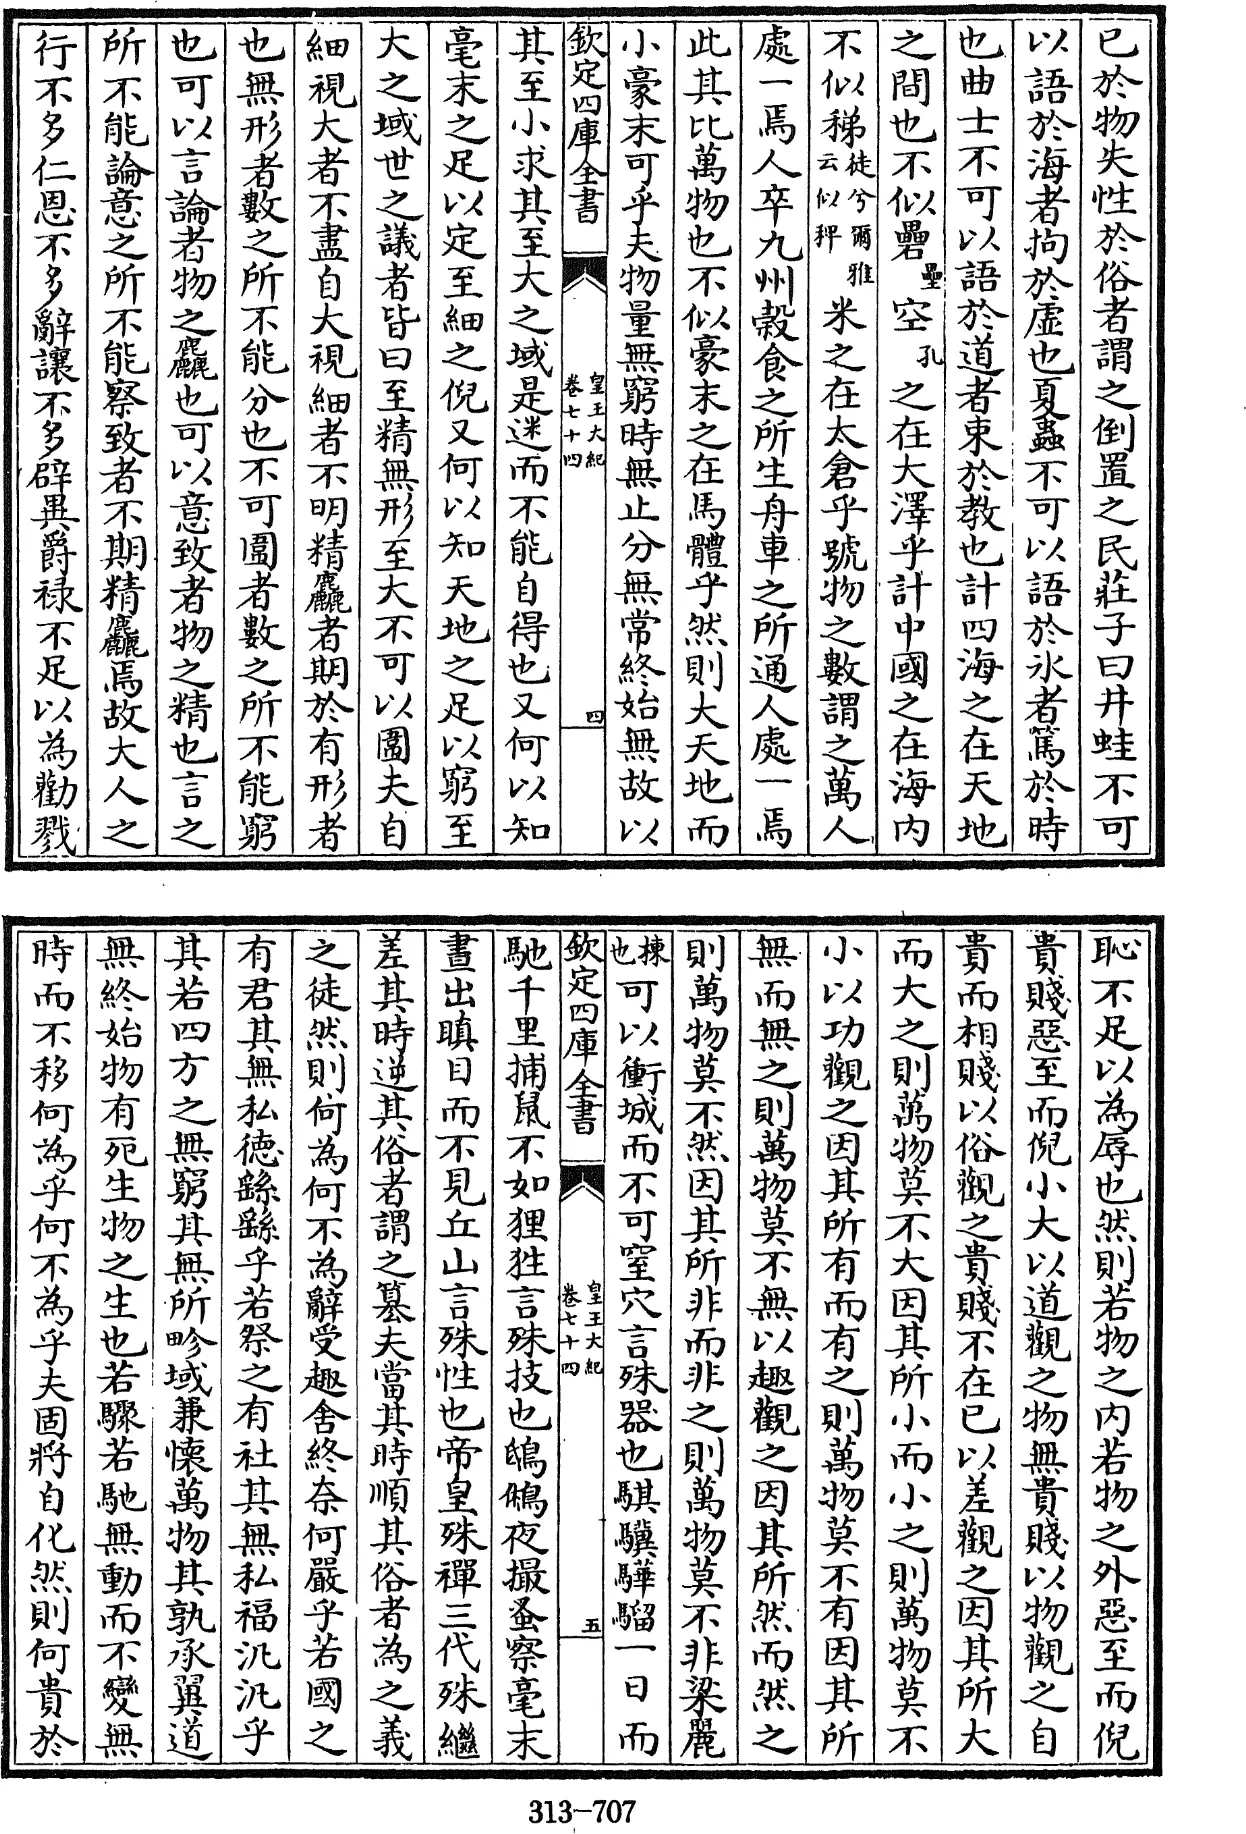 已於物失性於俗者謂之倒置之民莊子曰井蛙不可
以語於海者拘於虛也夏蟲不可以語於氷者篤於時
也曲士不可以語於道者束於教也計四海之在天地
之間也不似礨壘空孔之在大澤乎計中國之在海内
不似稊徒兮爾雅云似稗米之在太倉乎號物之數謂之萬人
處一焉人卒九州榖食之所生舟車之所通人處一焉
此其比萬物也不似豪末之在馬體乎然則大天地而
小豪末可乎夫物量無窮時無止分無常終始無故以
欽定四庫全書
皇王大紀
卷七十四
四
其至小求其至大之域是迷而不能自得也又何以知
毫末之足以定至細之倪又何以知天地之足以窮至
大之域世之議者皆曰至精無形至大不可以圍夫自
細視大者不盡自大視細者不明精麤者期於有形者
也無形者數之所不能分也不可圍者數之所不能窮
也可以言論者物之麤也可以意致者物之精也言之
所不能論意之所不能察致者不期精麤焉故大人之
行不多仁恩不多辭讓不多辟異爵禄不足以為勸戮
恥不足以為辱也然則若物之内若物之外惡至而倪
貴賤惡至而倪小大以道觀之物無貴賤以物觀之自
貴而相賤以俗觀之貴賤不在已以差觀之因其所大
而大之則萬物莫不大因其所小而小之則萬物莫不
小以功觀之因其所有而有之則萬物莫不有因其所
無而無之則萬物莫不無以趣觀之因其所然而然之
則萬物莫不然因其所非而非之則萬物莫不非梁麗
棟也可以衝城而不可窒穴言殊器也騏驥驊騮一日而
欽定四庫全書
皇王大紀
卷七十四
五
馳千里捕鼠不如狸狌言殊技也鴟鵂夜撮蚤察毫末
晝出瞋目而不見丘山言殊性也帝皇殊禪三代殊繼
差其時逆其俗者謂之篡夫當其時順其俗者為之義
之徒然則何為何不為辭受趣舍終奈何嚴乎若國之
有君其無私徳繇繇乎若祭之有社其無私福汎汎乎
其若四方之無窮其無所畛域兼懷萬物其孰承翼道
無終始物有死生物之生也若驟若馳無動而不變無
時而不移何為乎何不為乎夫固將自化然則何貴於
313-707